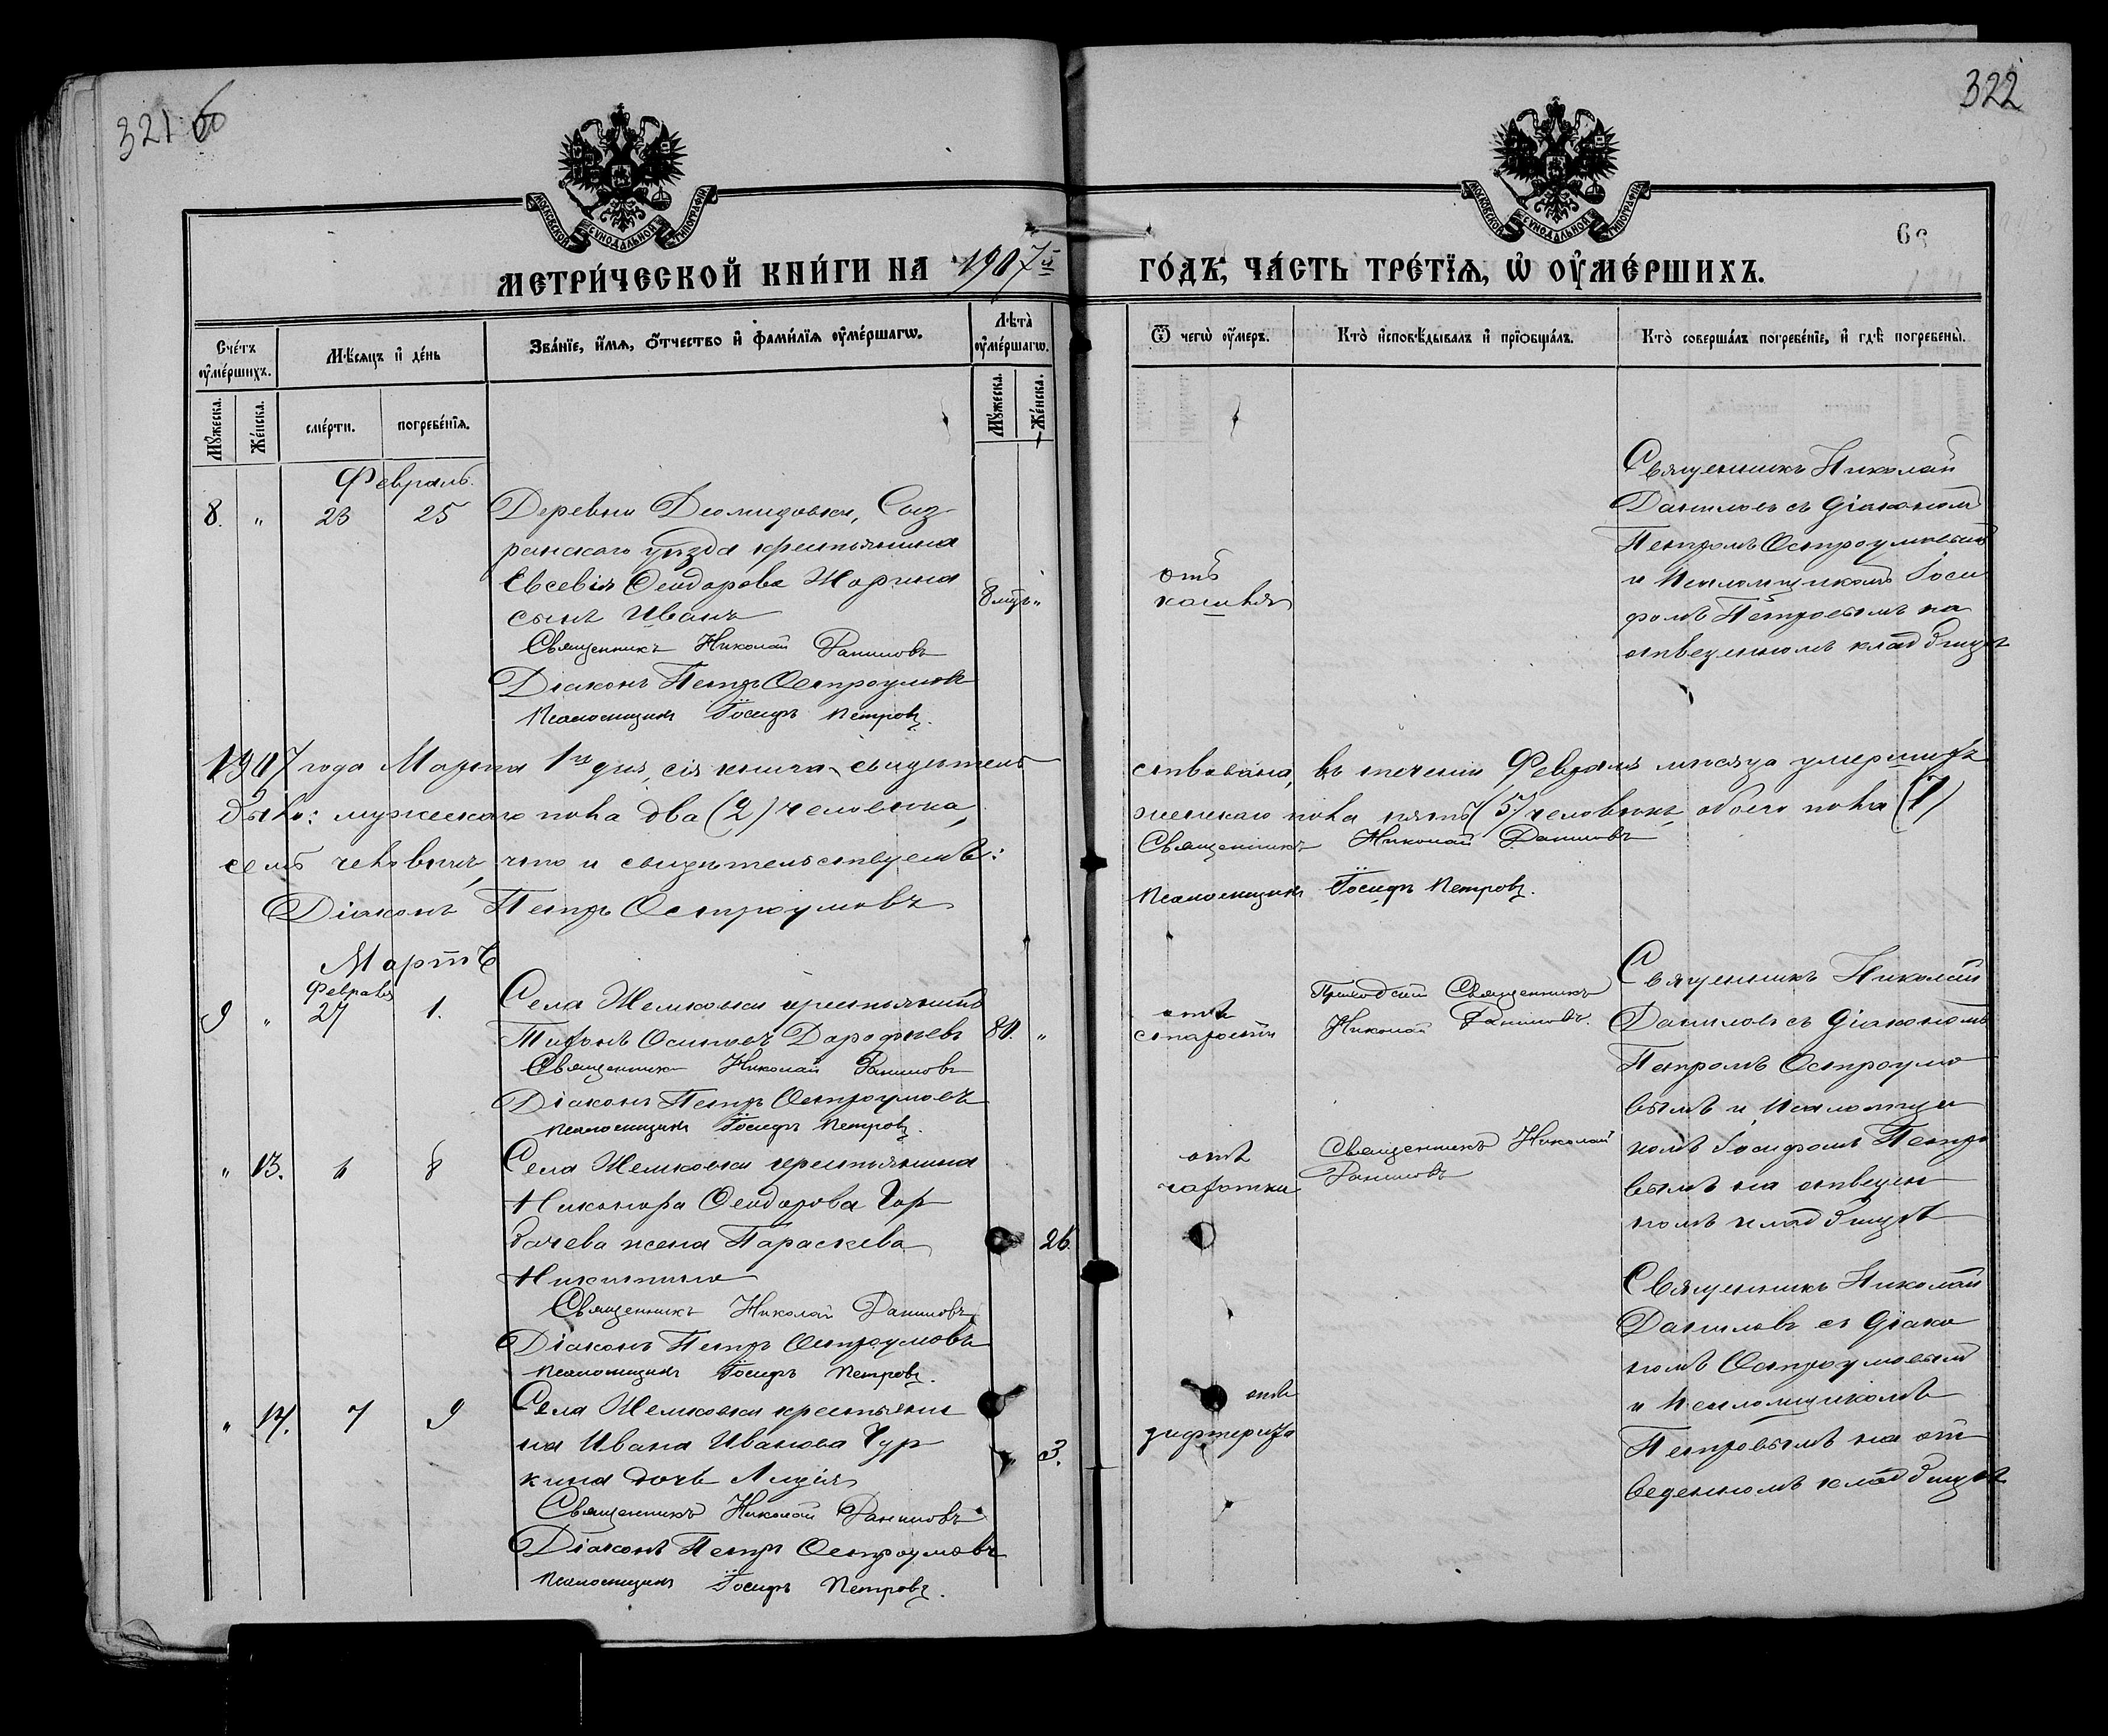 321 б
322
МОСКОВСКОЙ СѴНОДАЛЬНОЙ ТИПОГРАФІИ
МОСКОВСКОЙ СѴНОДАЛЬНОЙ ТИПОГРАФІИ
МЕТРИ́ЧЕСКОЙ КНИ́ГИ НА 1907й ГО́ДЪ, ЧА́СТЬ ТРЕ́ТІѦ, Ѡ ОУМЕ́РШИХЪ.
Сче́тъ оуме́ршихъ.
Мꙋжеска.
Же́нска.
Мѣ́сяцъ и де́нь
сме́рти.
погребе́нїя.
Зва́нїе, и́мя, о́тчество и фами́лїя оуме́ршагѡ.
Лѣта̀ оуме́ршагѡ.
Мꙋжеска.
Же́нска.
Ѿ чегѡ̀ оу́меръ.
Кто̀ и҆сповѣ́дывалъ и прїобща́лъ.
Кто̀ соверша́лъ погребе́нїе, и гдѣ̀ погребены̀.
Февраль.
8. " 23 25
Деревни Деомидовки, Сыз
ранскаго уѣзда крестьянина
Евсевія Ѳеодорова Жарина
сынъ Иванъ
8 мѣс. "
Священникъ Николай Даниловъ
Діаконъ Петръ Остроумовъ
Псаломщикъ Іосифъ Петровъ.
отъ
кашля
Священникъ Николай
Даниловъ съ діакономъ
Петромъ Остроумовымъ
и Псаломщикомъ Іоси
фомъ Петровымъ на
отведенномъ кладбищѣ
1907 года Марта 1го дня, сія книга свидѣтель
ствована, въ теченіи Февраля мѣсяца умершихъ
было: мужескаго пола два (2) человѣка,
женскаго пола пять (5) человѣкъ, обоего пола (7)
семь человѣкъ, что и свидѣтельствуемъ:
Священникъ Николай Даниловъ
Діаконъ Петръ Остроумовъ
Псаломщикъ Іосифъ Петровъ.
Мартъ
Февраля
9 " 27 1.
Села Жемковки крестьянинъ
Тихонъ Осиповъ Дорофѣевъ
80. "
Священникъ Николай Даниловъ
Діаконъ Петръ Остроумовъ
Псаломщикъ Іосифъ Петровъ.
отъ
старости
Приходскій Священникъ
Николай Даниловъ.
Священникъ Николай
Даниловъ съ діакономъ
Петромъ Остроумо
вымъ и Псаломщи
комъ Іосифомъ Петро
вымъ на отведен
номъ кладбищѣ
" 13. 6 8
Села Жемковки крестьянина
Никонора Ѳеодорова Гор
бачева жена Параскева
Никитина
26.
Священникъ Николай Даниловъ
Діаконъ Петръ Остроумовъ
Псаломщикъ Іосифъ Петровъ.
отъ
чахотки
Священникъ Николай
Даниловъ
Священникъ Николай
Даниловъ съ діако
номъ Остроумовымъ
и Псаломщикомъ
Петровымъ на от
веденномъ кладбищѣ
" 14. 7 9
Села Жемковки крестьяни
на Ивана Иванова Чур
кина дочь Лидія
" 3.
Священникъ Николай Даниловъ
Діаконъ Петръ Остроумовъ
Псаломщикъ Іосифъ Петровъ.
отъ
дифтерита